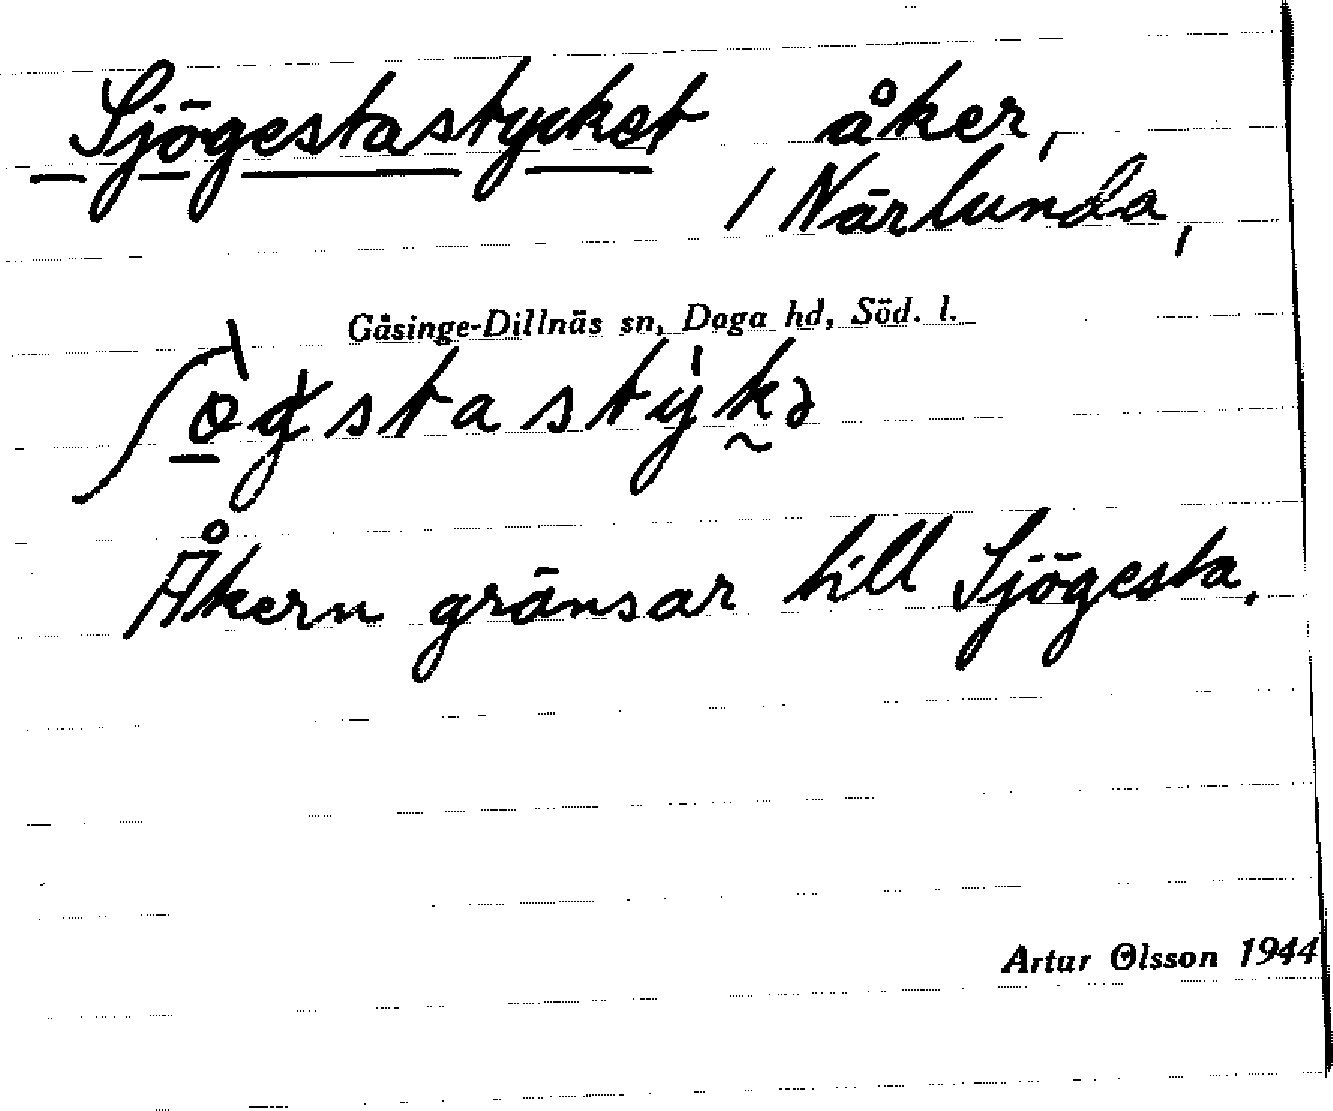 Sjögestastycket åker,
/ Närlunda,
Gåsinge-Dillnäs sn, Daga hd, Söd. l.
Åkern gränsar till Sjögesta.
Artur Olsson 1944